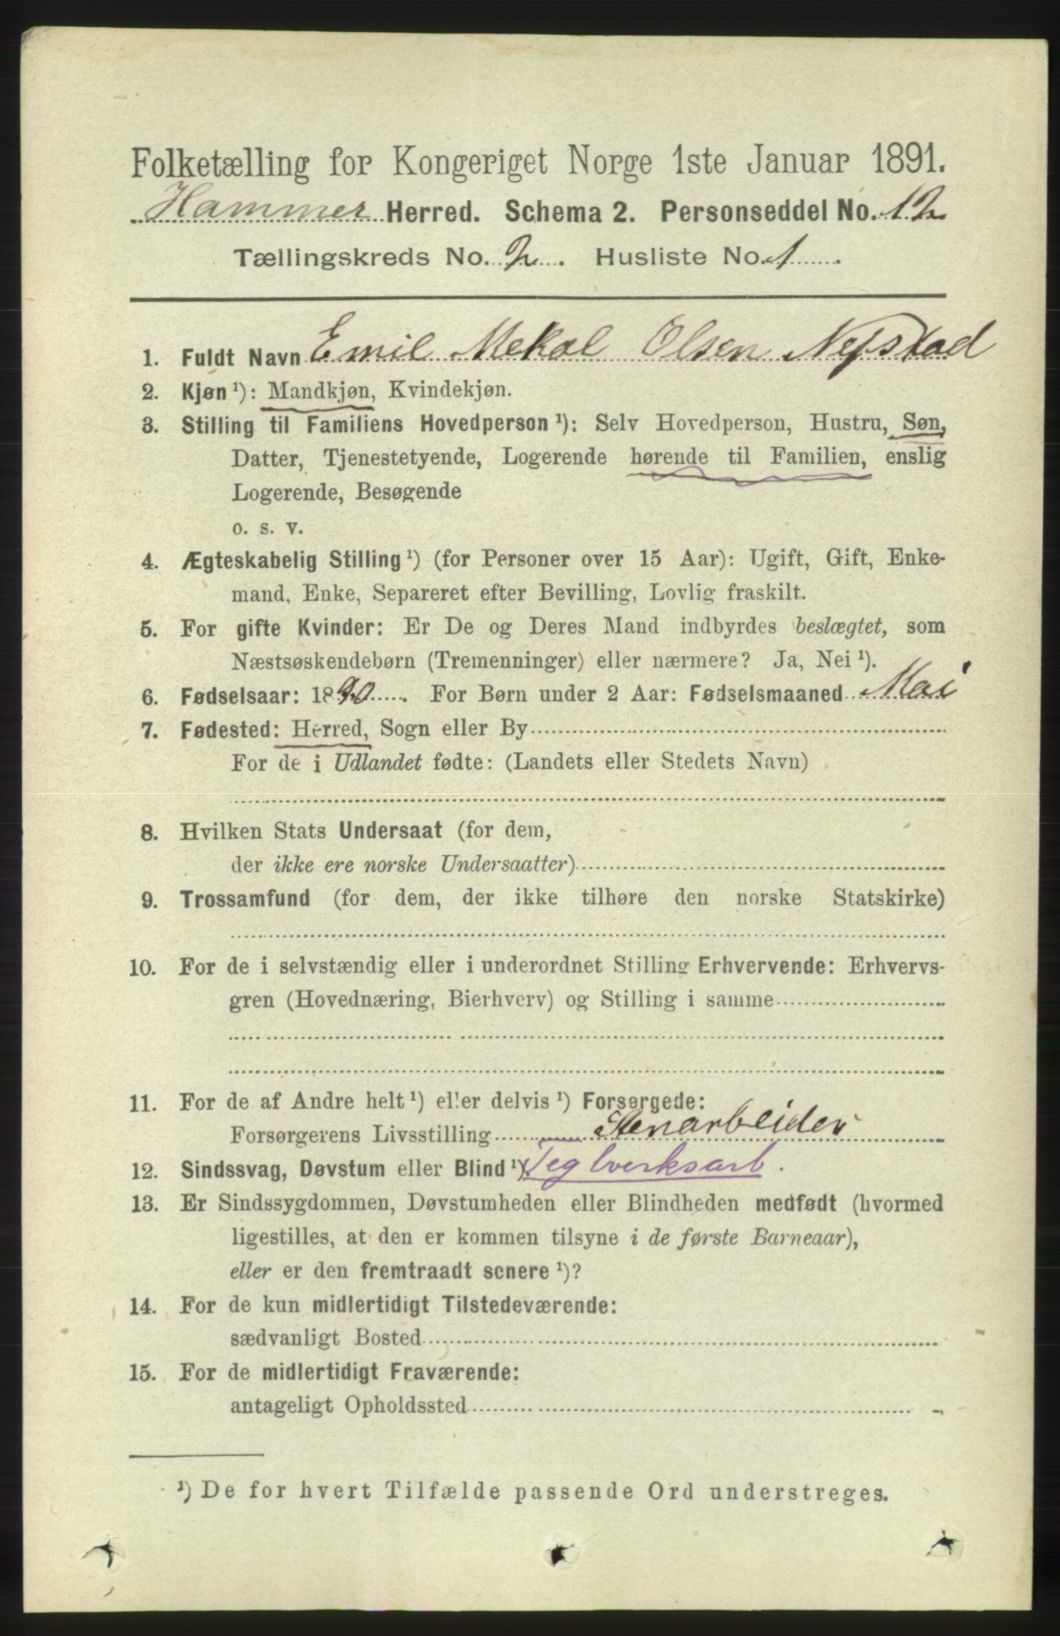 Folketælling for Kongeriget Norge 1ste Januar 1891.
Hammer Herred. Schema 2. Personseddel No. 12
Tællingskreds No. 2. Husliste No. 1.
1. Fuldt Navn Emil Mekal Olsen Nystad
2. Kjøn ¹): Mandkjøn, Kvindekjøn.
3. Stilling til Familiens Hovedperson ¹): Selv Hovedperson, Hustru, Søn,
Datter, Tjenestetyende, Logerende hørende til Familien, enslig
Logerende, Besøgende
o. s. v.
4. Ægteskabelig Stilling ¹) (for Personer over 15 Aar): Ugift, Gift, Enke-
mand, Enke, Separeret efter Bevilling, Lovlig fraskilt.
5. For gifte Kvinder: Er De og Deres Mand indbyrdes beslægtet, som
Næstsøskendebørn (Tremenninger) eller nærmere? Ja, Nei ¹).
6. Fødselsaar: 1890. For Børn under 2 Aar: Fødselsmaaned Mai
7. Fødested: Herred, Sogn eller By
For de i Udlandet fødte: (Landets eller Stedets Navn)
8. Hvilken Stats Undersaat (for dem,
der ikke ere norske Undersaatter)
9. Trossamfund (for dem, der ikke tilhøre den norske Statskirke)
10. For de i selvstændig eller i underordnet Stilling Erhvervende: Erhvervs-
gren (Hovednæring, Bierhverv) og Stilling i samme
11. For de af Andre helt ¹) eller delvis ¹) Forsørgede:
Forsørgerens Livsstilling Stenarbeider
12. Sindssvag, Døvstum eller Blind ¹) Teglverksarb.
13. Er Sindssygdommen, Døvstumheden eller Blindheden medfødt (hvormed
ligestilles, at den er kommen tilsyne i de første Barneaar),
eller er den fremtraadt senere ¹)?
14. For de kun midlertidigt Tilstedeværende:
sædvanligt Bosted
15. For de midlertidigt Fraværende:
antageligt Opholdssted
¹) De for hvert Tilfælde passende Ord understreges.